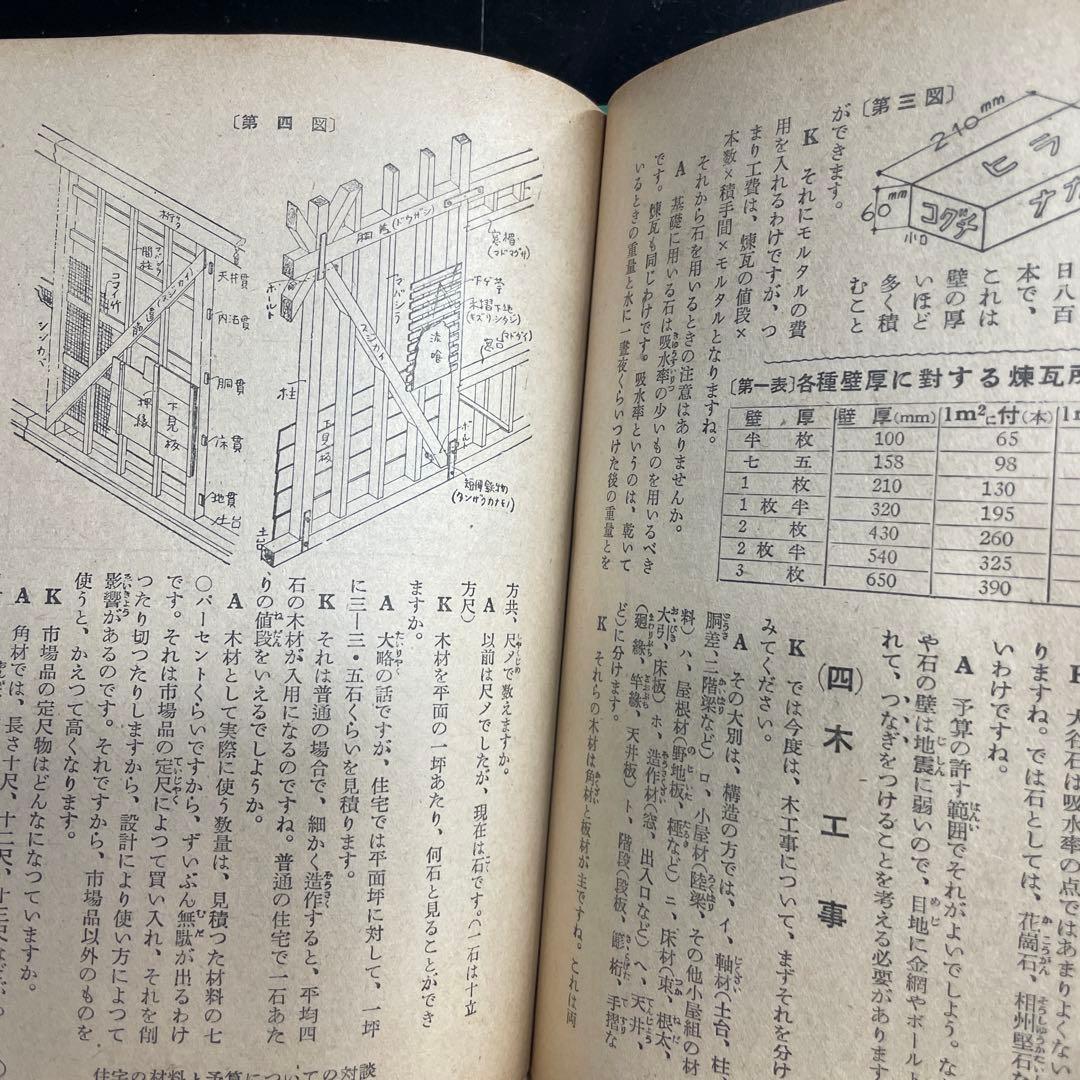 〔第三図〕
240mm
60mm
ヒラ
コグチ
小口
日八百
本で、
これは
壁の厚
いほど
多く積
むこと
ができます。
K それにモルタルの費
用を入れるわけですが、つ
まり工費は、煉瓦の値段×
本数×積手間×モルタルとなりますね。
それから石を用いるときの注意はありませんか。
A 基礎に用いる石は吸水率の少いものを用いるべき
です。煉瓦も同じわけです。吸水率というのは、乾いて
いるときの重量と水に一晝夜くらいつけた後の重量とを
〔第一表〕各種壁厚に對する煉瓦所
壁厚 壁厚(mm) 1m²に付(本)
半枚 100 65
七五 158 98
1枚 210 130
1枚半 320 195
2枚 430 260
2枚半 540 325
3枚 650 390
大谷石は吸水率の点ではあまりよくない
りますね。では石としては、花崗石、相州堅石な
いわけですね。
A 予算の許す範囲でそれがよいでしよう。な
や石の壁は地震に弱いので、目地に金網やボールト
れて、つなぎをつけることを考える必要があります
(四) 木工事
K では今度は、木工事について、まずそれを分け
みてください。
A その大別は、構造の方では、イ、軸材(土台、柱、
胴差、二階梁など)ロ、小屋材(陸梁、その他小屋組の材
料)ハ、屋根材(野地板、種など)ニ、床材(束、根太、
大引、床板)ホ、造作材(窓、出入口など)ヘ、天井、
(廻緣、竿緣、天井板)ト、階段(段板、簓桁、手摺な
ど)に分けます。
K それらの木材は角材と板材が主ですね。これは両
〔第四図〕
桁
間柱
コマイ竹
(スジカイ)
天井貫
内法貫
胴貫
床貫
地貫
土台
押緣
下見板
ボールト
胴差(ドウザシ)
マバシラ
窓楣
(マドマグサ)
木摺下地
窓台
(マドダイ)
漆喰
柱
下見板
土台
短冊鉄物
(タンザクカナモノ)
方共、尺〆で数えますか。
A 以前は尺〆でしたが、現在は石です。(一石は十立
方尺)
K 木材を平面の一坪あたり、何石と見ることができ
ますか。
A 大略の話ですが、住宅では平面坪に対して、一坪
に三―三・五石くらいを見積ります。
K それは普通の場合で、細かく造作すると、平均四
石の木材が入用になるのですね。普通の住宅で一石あた
りの値段をいえるでしようか。
A 木材として実際に使う数量は、見積つた材料の七
〇パーセントくらいですから、ずいぶん無駄が出るわけ
です。それは市場品の定尺によつて買い入れ、それを削
つたり切つたりしますから、設計により使い方によつて
影響があるのです。それですから、市場品以外のものを
使うと、かえつて高くなります。
K 市場品の定尺物はどんなになつていますか。
A 角材では、長さ十尺、十二尺、十三尺など、